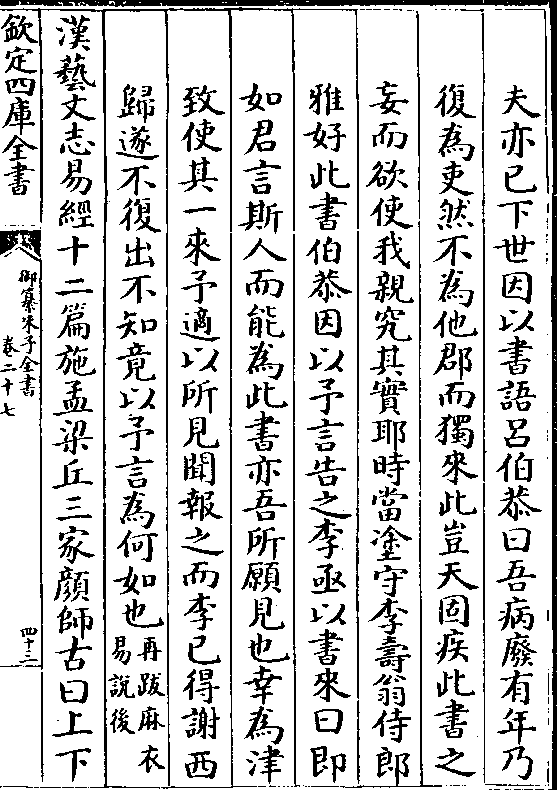 夫亦已下世因以書語呂伯恭曰吾病廢有年乃
復為吏然不為他郡而獨來此豈天固疾此書之
妄而欲使我親究其實耶時當塗守李壽翁侍郎
雅好此書伯恭因以予言告之李亟以書來曰即
如君言斯人而能為此書亦吾所願見也幸為津
致使其一來予適以所見聞報之而李已得謝西
歸遂不復出不知竟以予言為何如也再跋麻衣
易説後
漢藝文志易經十二篇施孟梁丘三家顔師古曰上下
欽定四庫全書
御纂朱子全書
卷二十七
四十二